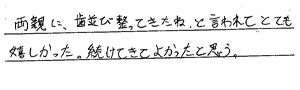 両親に、歯並び整ってきたね、と言われてとても
嬉しかった。続けてきてよかったと思う。